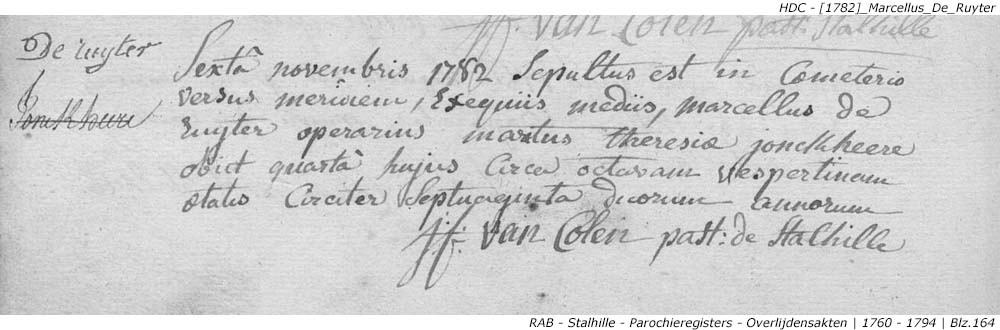 HDC - [1782]_Marcellus_De_Ruyter
jf. van Colen past: Stalhille
De ruyter
Jonckheere
Sextâ novembris 1782 Sepultus est in Cometerio
versus meridiem, Exequiis mediis, marcellus de
ruyter operarius maritus theresiæ jonckheere
obiit quartâ hujus Circa octavam vespertinam
ætatis Circiter Septuaginta duorum annorum
jf. van Colen past: de Stalhille
RAB - Stalhille - Parochieregisters - Overlijdensakten | 1760 - 1794 | Blz.164